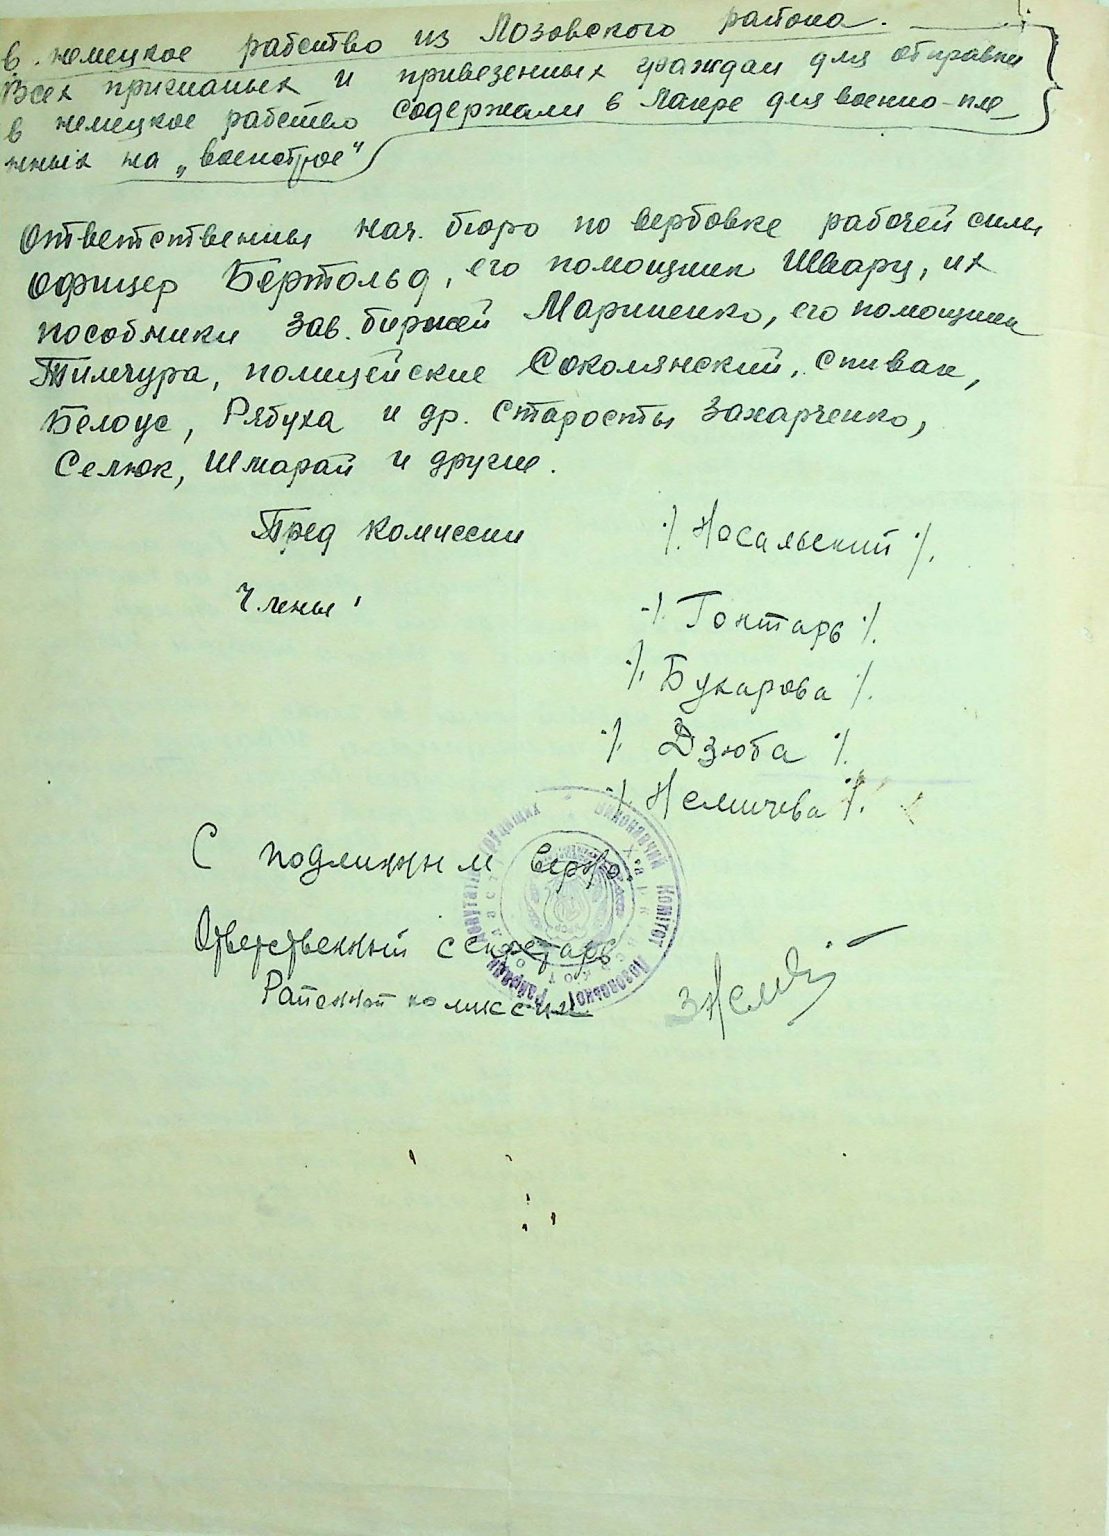 в немецкое рабство из Лозовского района.
Всех пригнаных и привезенных граждан для отправки
в немецкое рабство содержали в лагере для военно-пле_
нных на „военстрое"
Ответственны нач. бюро по вербовке рабочей силы
Офицер Бертольд, его помощник Шварц, их
пособники зав. биржей Мариненко, его помощник
Тимчура, полицейские Соколянский, Спивак,
Белоус, Рябуха и др. старосты Захарченко,
Селюк, Шмарай и другие.
Пред комиссии ·/. Носальский ·/.
Члены: ·/. Гонтарь ·/.
·/. Букарова ·/.
·/. Дзюба ·/.
·/. Немичева ·/.
С подлинным верно.
Ответственный секретарь
Районной комиссии
Виконавчий Комітет Лозівської Райради депутатів трудящих